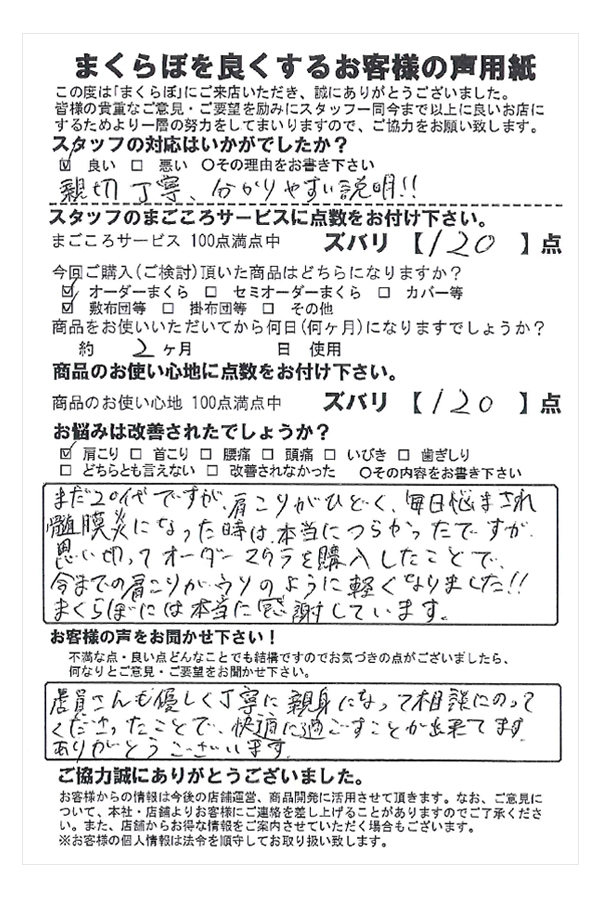 まくらぼを良くするお客様の声用紙
この度は「まくらぼ」にご来店いただき、誠にありがとうございました。
皆様の貴重なご意見・ご要望を励みにスタッフ一同今まで以上に良いお店に
するためより一層の努力をしてまいりますので、ご協力をお願い致します。
スタッフの対応はいかがでしたか？
☑ 良い □ 悪い ○その理由をお書き下さい
親切丁寧、分かりやすい説明!!
スタッフのまごころサービスに点数をお付け下さい。
まごころサービス 100点満点中 ズバリ 【120】点
今回ご購入(ご検討)頂いた商品はどちらになりますか？
☑ オーダーまくら □ セミオーダーまくら □ カバー等
☑ 敷布団等 □ 掛布団等 □ その他
商品をお使いいただいてから何日(何ヶ月)になりますでしょうか？
約 2ヶ月 日 使用
商品のお使い心地に点数をお付け下さい。
商品のお使い心地 100点満点中 ズバリ 【120】点
お悩みは改善されたでしょうか？
☑ 肩こり □ 首こり □ 腰痛 □ 頭痛 □ いびき □ 歯ぎしり
□ どちらとも言えない □ 改善されなかった ○その内容をお書き下さい
まだ20代ですが、肩こりがひどく、毎日悩まされ
髄膜炎になった時は、本当につらかったですが、
思い切ってオーダーマクラを購入したことで、
今までの肩こりがウソのように軽くなりました!!
まくらぼには本当に感謝しています。
お客様の声をお聞かせ下さい！
不満な点・良い点どんなことでも結構ですのでお気づきの点がございましたら、
何なりとご意見・ご要望をお聞かせ下さい。
店員さんも優しく丁寧に親身になって相談にのって
くださったことで、快適に過ごすことが出来てます。
ありがとうございます。
ご協力誠にありがとうございました。
お客様からの情報は今後の店舗運営、商品開発に活用させて頂きます。なお、ご意見に
ついて、本社・店舗よりお客様にご連絡を差し上げることがありますのでご了承くださ
い。また、店舗からお得な情報をご案内させていただく場合もございます。
※お客様の個人情報は法令を順守してお取り扱い致します。